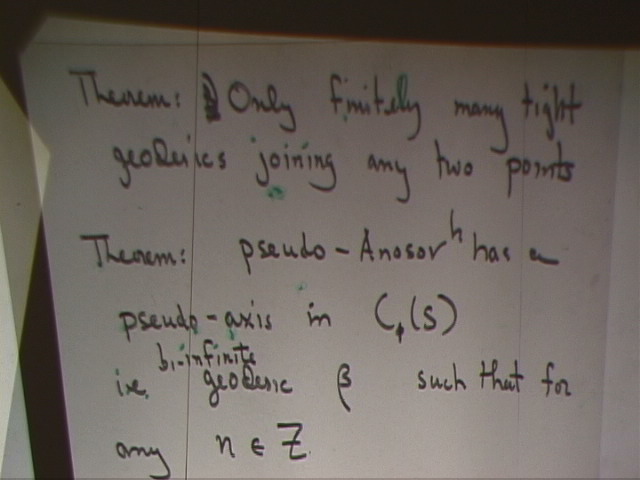 Theorem: Only finitely many tight
geodesics joining any two points
Theorem: pseudo-Anosov h has a
pseudo-axis in C₁(S)
i.e. bi-infinite geodesic β such that for
any n ∈ ℤ